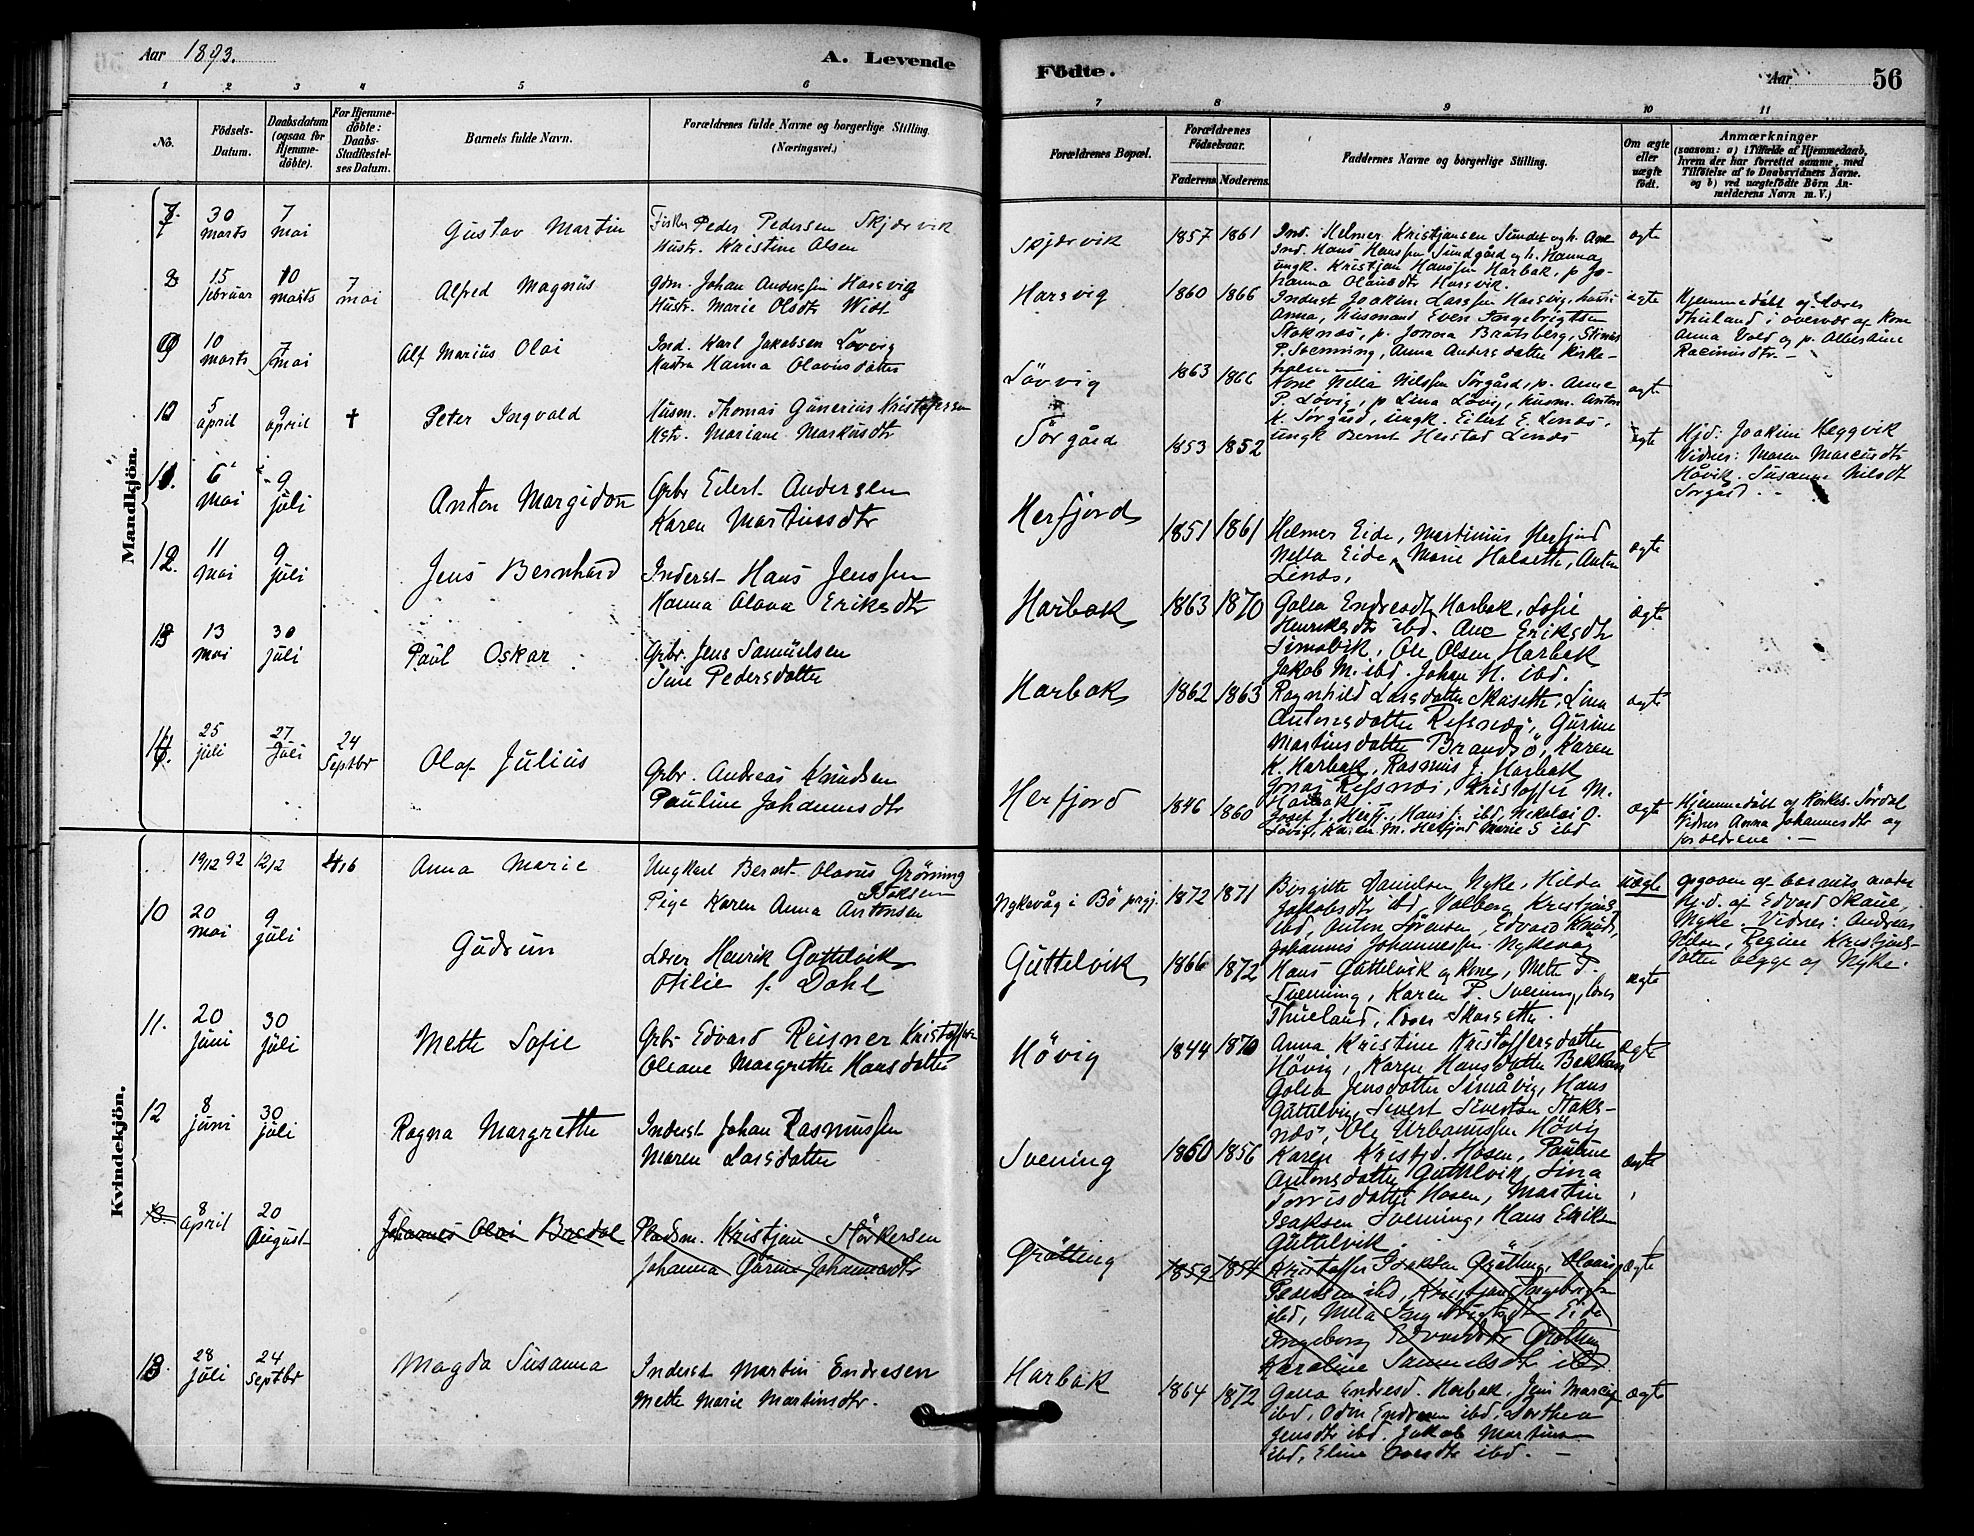 Aar 1893.
A. Levende
Fødte.
Aar
56
1 2 3 4 5 6 7 8 9 10 11
No.
Fødsels-
Datum.
Daabsdatum
(ogsaa for
Hjemme-
døbte).
For Hjemme-
døbte:
Daabs-
Stadfæstel-
ses Datum.
Barnets fulde Navn.
Forældrenes fulde Navne og borgerlige Stilling.
(Næringsvei.)
Forældrenes Bopæl.
Forældrenes
Fødselsaar.
Faderens.
Moderens.
Faddernes Navne og borgerlige Stilling.
Om ægte
eller
uægte
født.
Anmærkninger
(saasom: a) i Tilfælde af Hjemmedaab,
hvem der har forrettet samme, med
Tilføielse af to Daabsvidners Navne.
og b) ved uægtefødte Børn An-
melderens Navn m. V.)
Mandkjön.
30 marts
7 mai
Gustav Martin
Fisker Peder Pedersen Skjærvik
Hustr. Kristine Olsen
1857 1861
Ind. Helmer Kristjansen Sundet og h. Ane
Ind. Hans Hanssen Sundgård og h. Hanna
ungk. Kristjan Hanssen Harbak, p Jo-
hanna Olausdtr Harsvik.
ægte
8
15 februar
10 marts
7 mai
Alfred Magnus
Gdm. Johan Anderssen Harsvig
Hustr. Marie Olsdtr
Harsvig
1860 1866
Inderst Joakim Larssen Harsvig, hustr
Anna, husmand Even Ingebrigtsen
Stoknæs, p. Jonna Bratsberg,
P. Svenning, Anna Andersdatter Kirke-
holmen
ægte
Hjemmedøbt af Lærer
Thuland i overvær af Kone
Anna Vold og p. Albertine
Rasmusdtr. —
9
10 marts
7 mai
Alf Marius Olai
Ind. Karl Jakobsen Løvvig
Hustru Hanna Olausdatter
Løvvig
1863 1866
Kone Nilla Nilssen Sørgård, p. Anne
P. Løvig, p Lina Løvig, husm. Anton
K. Sørgård, ungk. Eilert E. Lenæs,
ungk Bernt Hestad Lenæs
ægte
10
5 april
9 april
†
Peter Ingvald
Husm. Thomas Gunerius Kristoffersen
Hstr. Mariane Markusdtr
Sørgård
1853 1852
ægte
Hjd: Joakim Heggvik
Vidner: Maren Marcusdtr
Håvik. Susanne Nilsdt
Sørgård. —
11.
6 mai
9 juli
Anton Margidon
Grbr Eilert Andersen
Karen Martinusdtr
Herfjord
1851 1861
Helmer Eide, Martinius Herfjord
Nella Eide, Marie Halsette, Anton
Lenæs,
ægte
12.
11 mai
9 juli
Jens Bernhard
Inderst Hans Jenssen
Hanna Olava Eriksdtr
Harbak
1863 1870
Golea Endresdtr Harbak, Sofie
Henriksdtr ibd. Ane Eriksdtr
Simavik, Ole Olsen Harbak
Jakob M. ibd. Johan H. ibd.
ægte
13
13 mai
30 juli
Paul Oskar
Grbr. Jens Samuelsen
Sine Pedersdatter
Harbak
1862 1863
Ragnhild Larsdatter Skasette, Lina
Antonsdatter Refsnæs, Gurine
Martinsdatter Brandsø, Karen
K. Harbak, Rasmus J. Harbak
Jonas Refsnæs, Kristoffer M.
Harbak
ægte
14.
25 juli
27 juli
24 Septbr
Olaf Julius
Grbr. Andreas Knudsen
Pauline Johannesdtr
Herfjord
1846 1860
Josef J. Herfj., Hans J. ibd, Nikolai O.
Løvig, Karen M. Herfjord Marie S ibd
ægte
Hjemmedøbt af Kirkes. Sørdal
Vidner Anna Johannesdtr og
forældrene. —
Kvindekjön.
19/12 92
12/12
Anna Marie
Ungkarl Bernt Olavus Grønning
Pige Karen Anna Antonsen
Nykevåg i Bö prgj.
1872 1871
Birgitte Danielsen Nyke, Hilda
Jakobsdtr ibd, Valberg Kristjans
ibd, Anton Sørensen, Edvard Knuds,
Johannes Johannessen Nykevåg
uægte
opgaven af barnets moder
Hj.d. af Edvard Skaue,
Nyke. Vidner: Andreas
Olsen, Regine Kristjans-
datter begge af Nyke.
10
20 mai
9 juli
Gudrun
Lærer Henrik Guttelvik
Otilie f. Dahl
Guttelvik
1866 1872
Hans Guttelvik og Kone, Mette P.
Svenning, Karen P. Svening, lærer
Thueland, lærer Skarsette.
ægte
11.
20 juni
30 juli
Mette Sofie
Grbr Edvard Reisner Kristoffersen
Oleane Margrethe Hansdatter
Høvig
1844 1870
Anna Kristine Kristoffersdatter
Høvig, Karen Hansdatter Bekken
Golea Jensdatter Simåvig, Hans
Guttelvig, Sivert Sivertsen Stoks-
næs, Ole Urbanussen Høvig
ægte
12
8 juni
30 juli
Ragna Margrethe
Inderst Johan Rasmussen
Maren Larsdatter
Svening
1860 1856
Karen Kristjd. Hosen, Pauline
Antonsdatter Guttelvik, Lina
Torrisdatter Hosen, Martin
Isaksen Svening, Hans Eriksen
Guttelvik.
ægte
13.
8 april
20 August
Johannes Olai Bredal
Pladsm. Kristjan Størkersen
Johanna Gurine Johannesdtr
Grøtting
1859 1854
Kristoffer Isaksen Grøtting, Olaus
Pedersen ibd, Kristjan Ingebrigtsen
ibd, Meta Ingebrigtsdtr Eide
Ingeborg Edvardsdtr Grøtting
Karoline Samuelsdtr ibd
ægte
13.
28 juli
24 Septbr
Magda Susanna
Inderst Martin Endresen
Mette Marie Martinsdtr.
Harbak
1864 1872
Golea Endresd. Harbak, Jens Marcus
ibd, Odin Endresen ibd, Dorthea
Jensdtr ibd. Jakob Martinsen
ibd, Eline Ovesdtr ibd. —
ægte